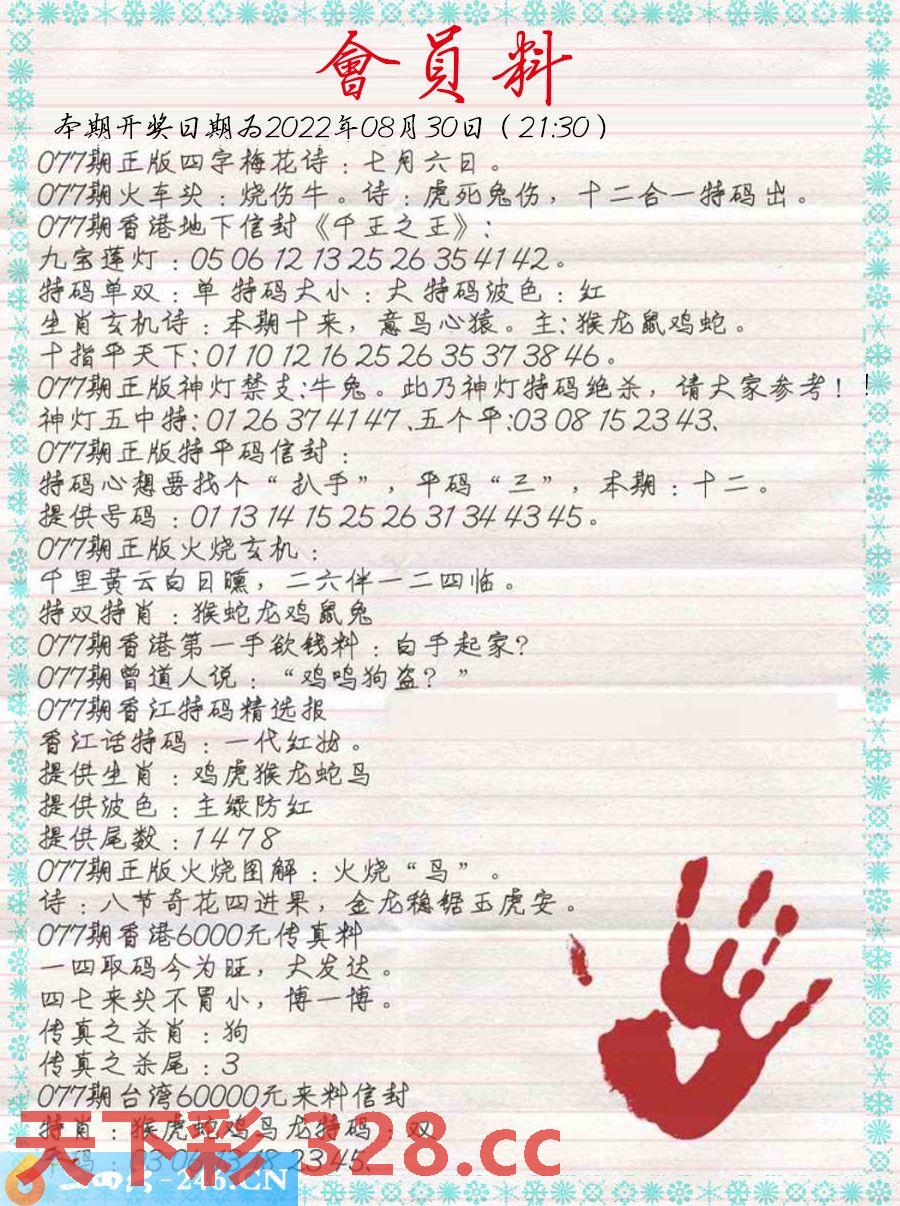 會員料
本期开奖日期为2022年08月30日（21:30）
077期正版四字梅花诗：七月六日。
077期火车头：烧伤牛。诗：虎死兔伤，十二合一特码出。
077期香港地下信封《千王之王》:
九宝莲灯：05 06 12 13 25 26 35 41 42。
特码单双：单 特码大小：大 特码波色：红
生肖玄机诗：本期十来，意鸟心猿。主:猴龙鼠鸡蛇。
十指平天下:01 10 12 16 25 26 35 37 38 46。
077期正版神灯禁支:牛兔。此乃神灯特码绝杀，请大家参考！！
神灯五中特:01 26 37 41 47、五个平:03 08 15 23 43、
077期正版特平码信封：
特码心想要找个“扒手”，平码“三”，本期：十二。
提供号码：01 13 14 15 25 26 31 34 43 45。
077期正版火烧玄机：
千里黄云白日曛，二六伴一二四临。
特双特肖：猴蛇龙鸡鼠兔
077期香港第一手欲钱料：白手起家？
077期曾道人说：“鸡鸣狗盗？”
077期香江特码精选报
香江话特码：一代红妆。
提供生肖：鸡虎猴龙蛇鸟
提供波色：主绿防红
提供尾数：1 4 7 8
077期正版火烧图解：火烧“鸟”。
诗：八节奇花四进果，金龙稳锯玉虎安。
077期香港6000元传真料
一四取码今为旺，大发达。
四七来头不冒小，博一博。
传真之杀肖：狗
传真之杀尾：3
077期台湾60000元来料信封
特肖：猴虎蛇鸡鸟龙特码：双
平码：03 04 13 18 23 45、
天下彩 328.cc
-246.CN